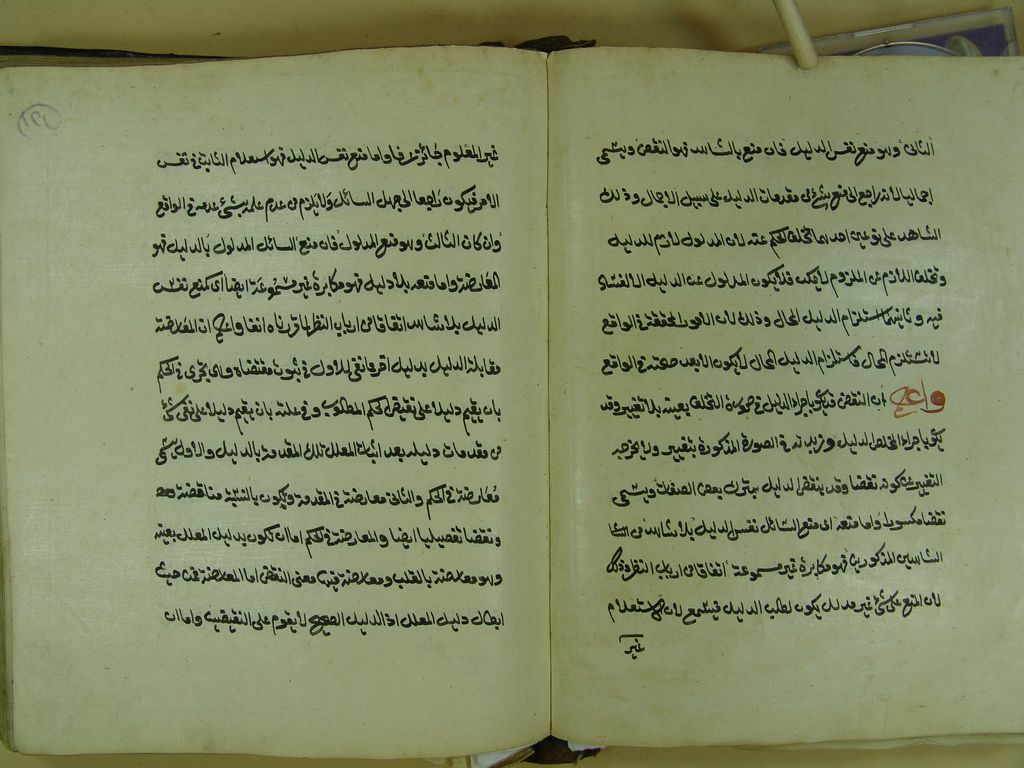 الثاني وهو منع نفس الدليل فان منع بالشاهد فهو النقض ويسمى
اجماليا لانه راجع الى منع شئ من مقدمات الدليل على سبيل الاجمال وذلك
الشاهد على نوعين احدهما تخلف الحكم عنه لان المدلول لازم للدليل
وتخلف اللازم عن الملزوم لا يمكن فلا يكون المدلول عن الدليل الا لفساد
فيه وثانيهما استلزام الدليل المحال وذلك لان الامور المحققة في الواقع
لا تستلزم المحال فاستلزام الدليل المحال لا يكون الا بعد صحته في الواقع
واعلم ان النقض قد يكون باجراء الدليل في صورة التخلف بعينه بلا تغيير وقد
يكون باجراء الدليل وزبدته في الصورة المذكورة بتغيير ولا يخرجه
التغيير عن كونه نقضا وقد ينقض الدليل بترك بعض الصفات ويسمى
نقضا مكسورا واما منعه اى منع السائل نفس الدليل بلا شاهد من
الشاهدين المذكورين فهو مكابرة غير مسموعة اتفاقا من ارباب النظر وذلك
لان المنع على شئ غير مدلل يكون لطلب الدليل فيسمع لانه استعلام
غير
غير المعلوم جائز عرفا واما منع نفس الدليل فهو استعلام الثابت في نفس
الامر فيكون راجعا الى جهل السائل ولا يلزم من عدم علمه بشئ عدمه في الواقع
وان كان الثالث وهو منع المدلول فان منع السائل المدلول بالدليل فهو
المعارضة واما منعه بلا دليل فهو مكابرة غير مسموعة ايضا اى كمنع نفس
الدليل بلا شاهد اتفاقا من ارباب النظر لما قررناه انفا واعلم ان المعارضة
مقابلة الدليل بدليل آخر مانع للاول في ثبوت مقتضاه وهى تجرى في الحكم
بان يقيم دليلا على نقيض الحكم المطلوب وفي علته بان يقيم دليلا على نفى شئ
من مقدمات دليله بعد اثبات المعلل تلك المقدمة بالدليل والاول يسمى
معارضة في الحكم والثاني معارضة في المقدمة ويكون بالنسبة مناقضة
ونقضا تفصيليا ايضا والمعارضة في الحكم اما ان تكون بدليل المعلل بعينه
وهو معارضة بالقلب ومعارضة فيها معنى النقض اما المعارضة فمن حيث
ابطال دليل المعلل اذ الدليل الصحيح لا يقوم على النقيضين واما ان